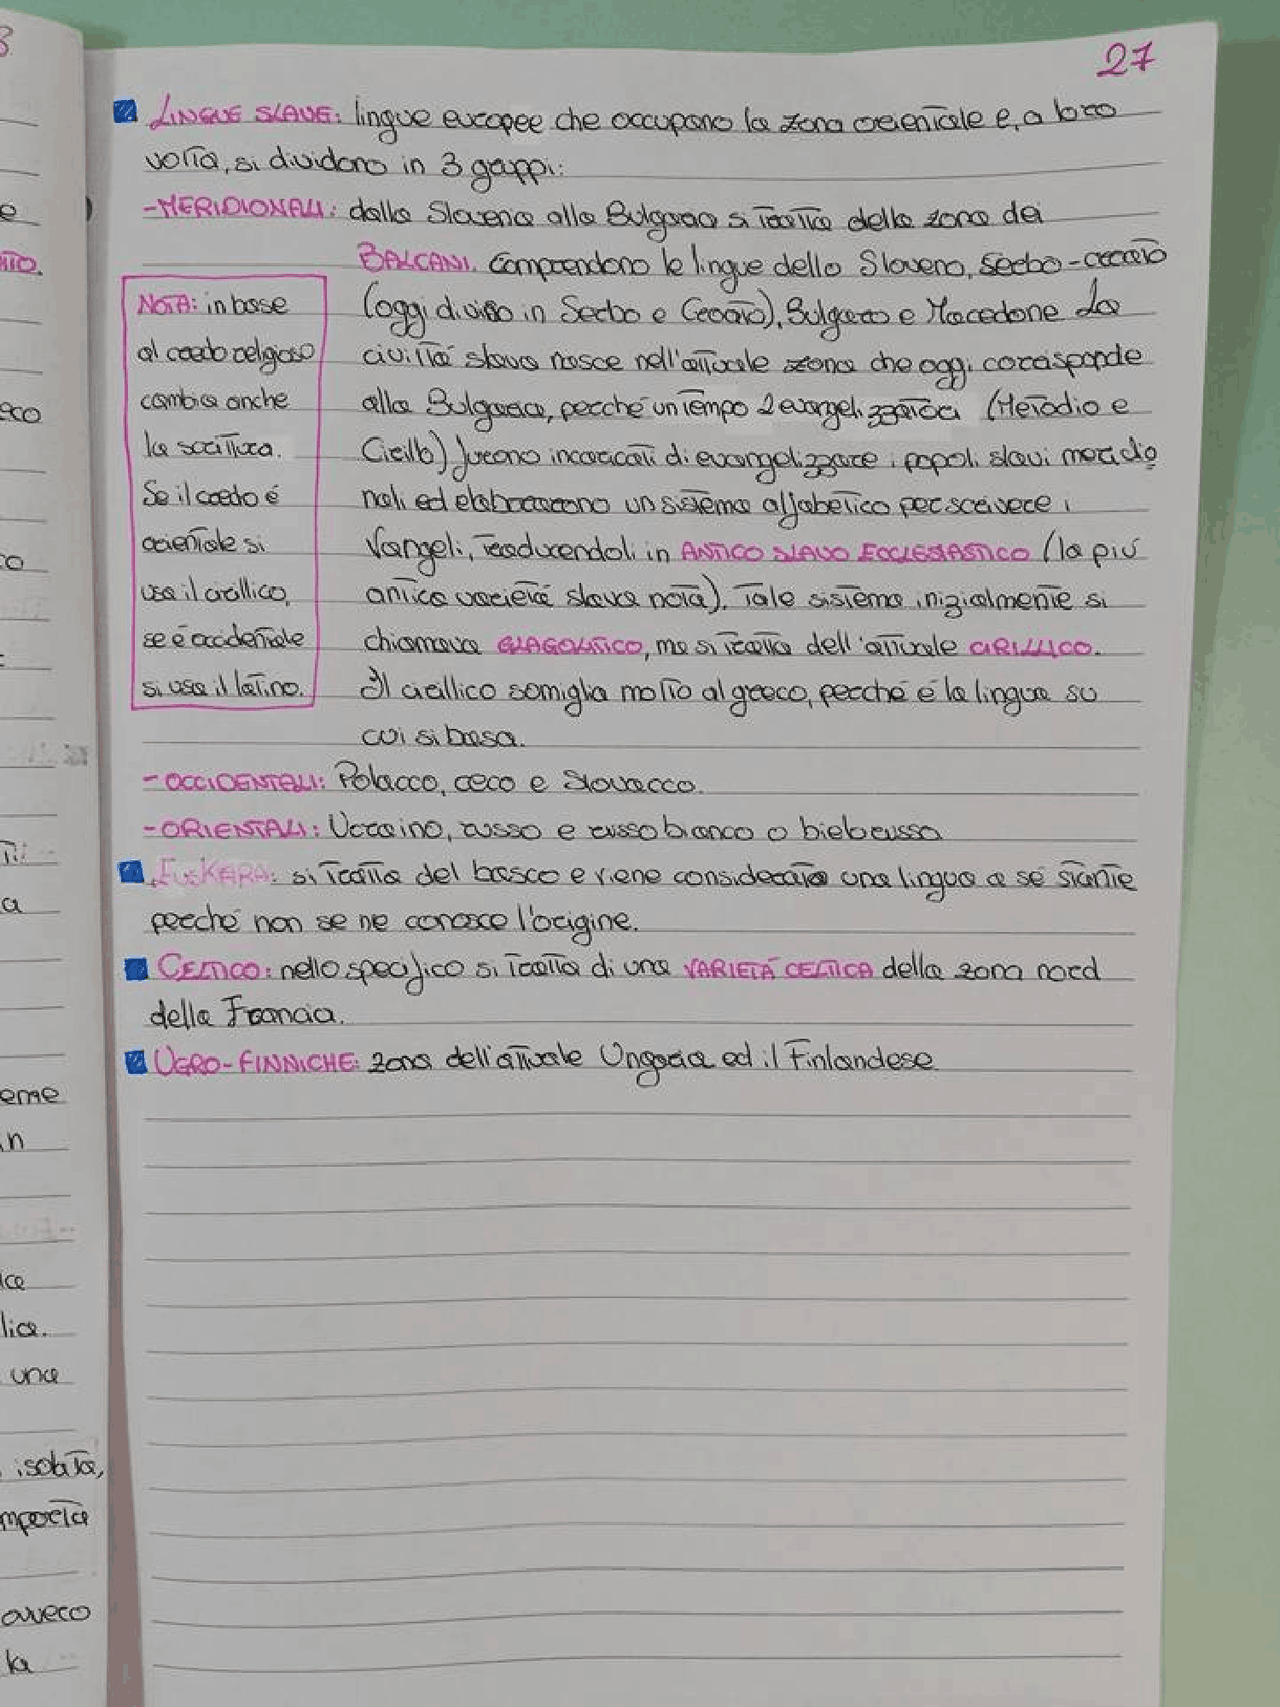 27
LINGUE SLAVE: lingue europee che occupano la zona orientale e, a loro
volta, si dividono in 3 gruppi:
-MERIDIONALI: dalla Slovenia alla Bulgaria si tratta della zona dei
BALCANI. Comprendono le lingue dello Sloveno, Serbo-croato
(oggi diviso in Serbo e Croato), Bulgaro e Macedone La
civiltà slava nasce nell'attuale zona che oggi corrisponde
alla Bulgaria, perché un tempo 2 evangelizzatori (Metodio e
Cirillo) furono incaricati di evangelizzare i popoli slavi meridio
nali ed elaborarono un sistema alfabetico per scrivere i
Vangeli, traducendoli in ANTICO SLAVO ECCLESIASTICO (la più
antica varietà slava nota). Tale sistema inizialmente si
chiamava GLAGOLITICO, ma si tratta dell'attuale CIRILLICO.
Il cirillico somiglia molto al greco, perché è la lingua su
cui si basa.
NOTA: in base
al credo religioso
cambia anche
la scrittura.
Se il credo è
orientale si
usa il cirillico,
se è occidentale
si usa il latino.
-OCCIDENTALI: Polacco, ceco e Slovacco.
-ORIENTALI: Ucraino, russo e russo bianco o bielorusso
EUSKARA: si tratta del basco e viene considerata una lingua a sé stante
perché non se ne conosce l'origine.
CELTICO: nello specifico si tratta di una VARIETÀ CELTICA della zona nord
della Francia.
UGRO-FINNICHE: zona dell'attuale Ungheria ed il Finlandese
e
eco
a
eme
in
lice
lica.
una
isolata,
importa
ovveco
la